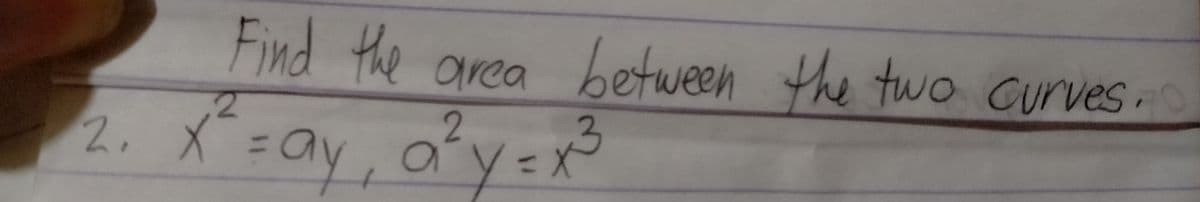 Find the area between the two curves.
2. x² = ay, a²y = x³